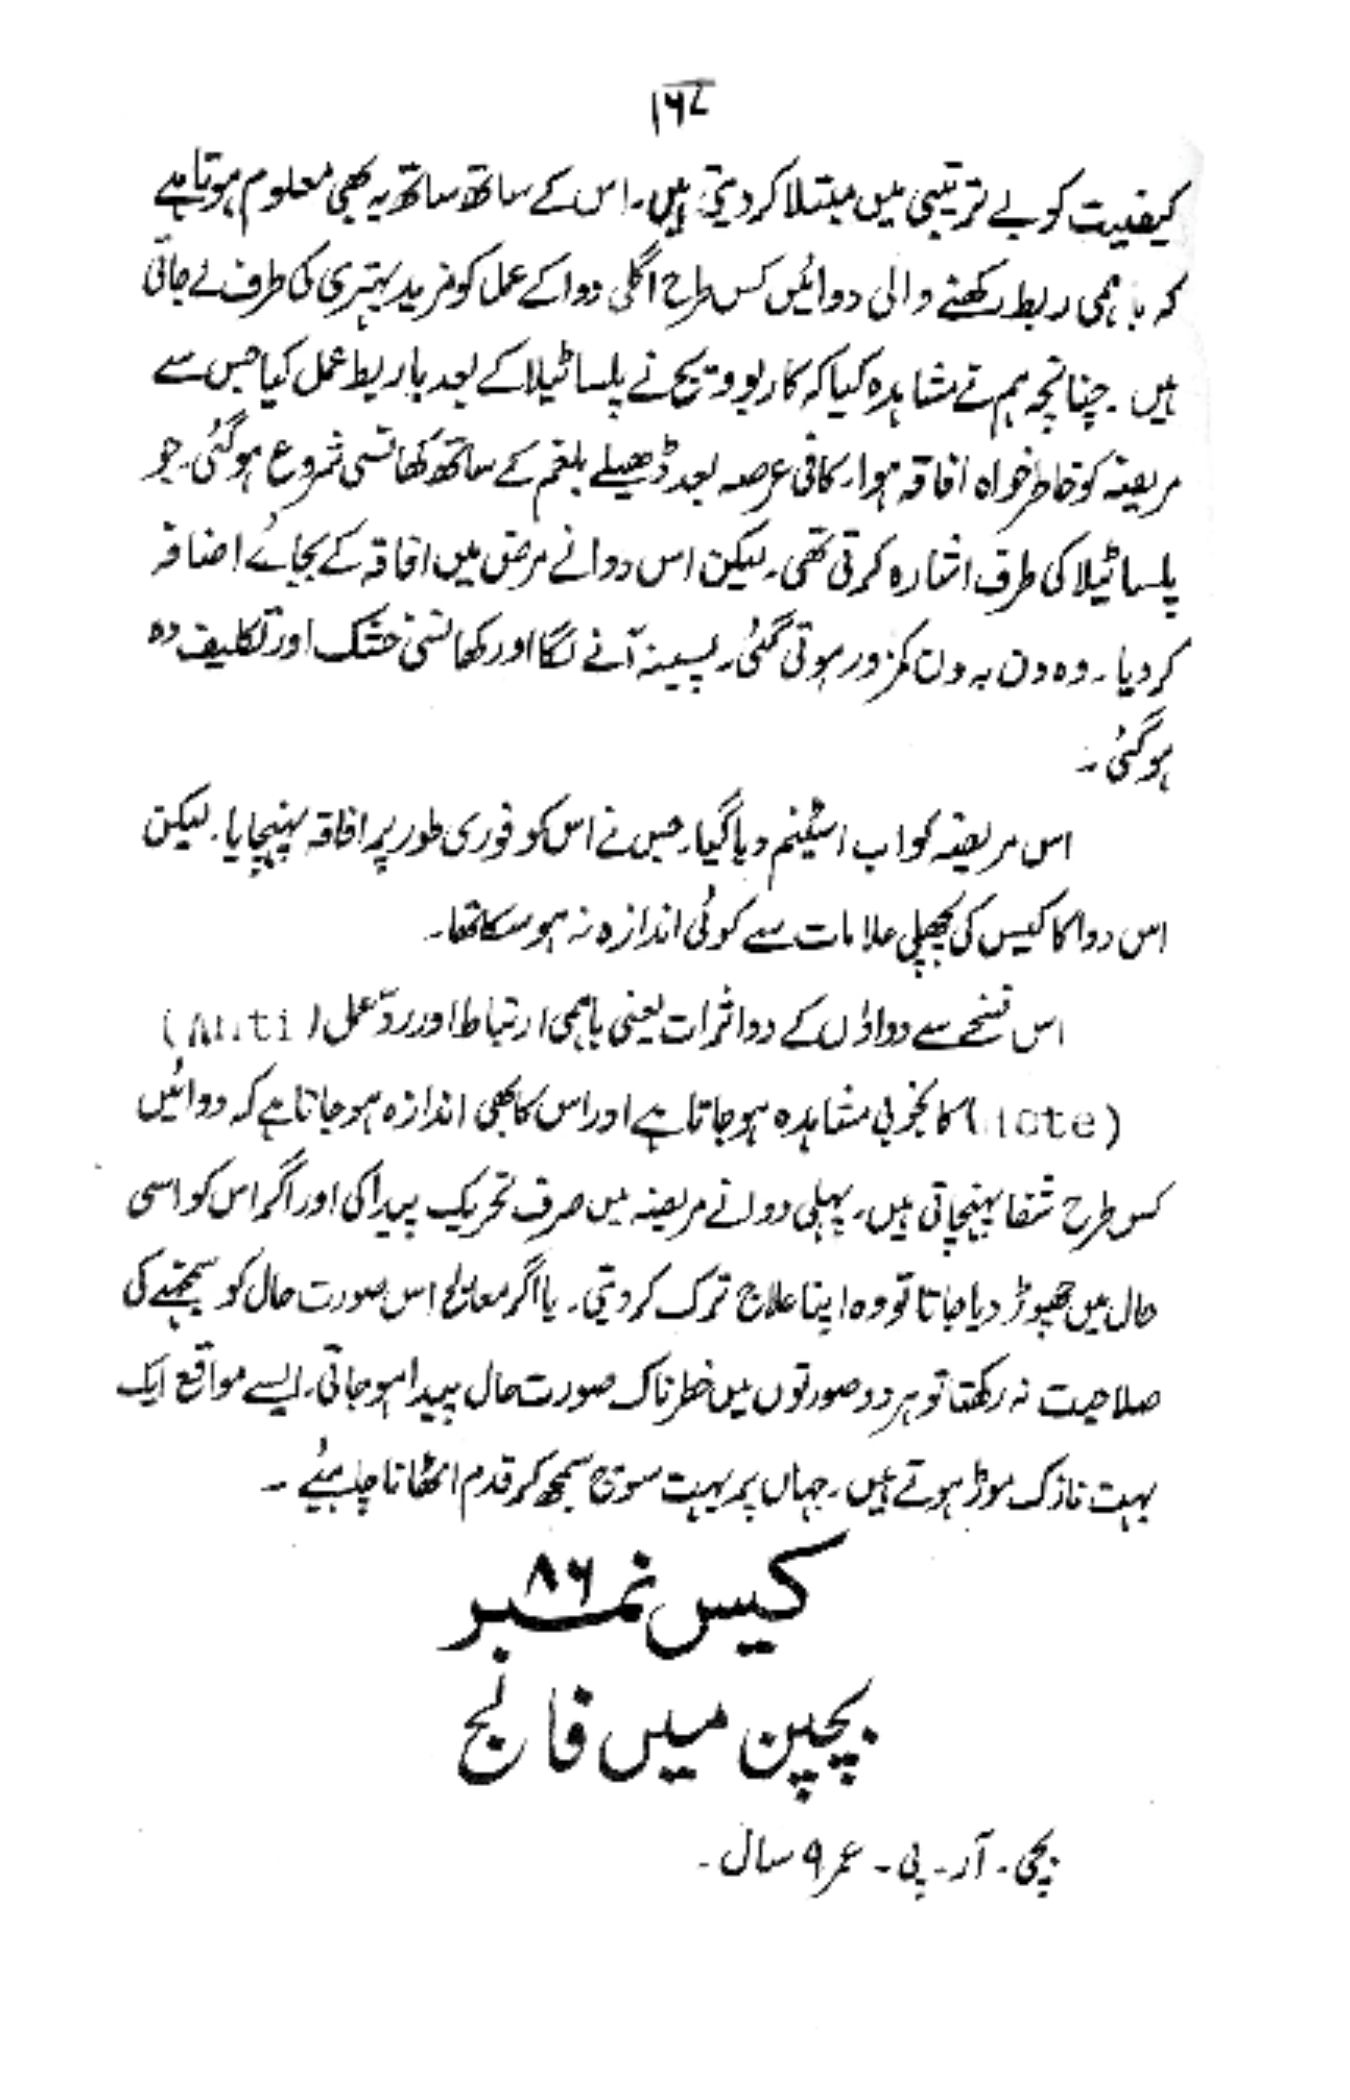 ۱۶۷
کیفیت کو بے ترتیبی میں مبتلا کر دیتی ہیں۔ اس کے ساتھ ساتھ یہ بھی معلوم ہوتا ہے
کہ باہمی ربط رکھنے والی دوائیں کس طرح اگلی دوا کے عمل کو مزید بہتری کی طرف لے جاتی
ہیں۔ چنانچہ ہم نے مشاہدہ کیا کہ کاربو ویج نے پلساٹیلا کے بعد باربط عمل کیا جس سے
مریضہ کو خاطر خواہ افاقہ ہوا۔ کافی عرصہ بعد ڈھیلے بلغم کے ساتھ کھانسی شروع ہو گئی۔ جو
پلساٹیلا کی طرف اشارہ کرتی تھی۔ لیکن اس دوا نے مرض میں افاقہ کے بجائے اضافہ
کر دیا۔ وہ دن بہ دن کمزور ہوتی گئی۔ پسینہ آنے لگا اور کھانسی خشک اور تکلیف دہ
ہو گئی۔
اس مریضہ کو اب اسٹینم دیا گیا۔ جس نے اس کو فوری طور پر افاقہ پہنچایا۔ لیکن
اس دوا کا کیس کی پچھلی علامات سے کوئی اندازہ نہ ہو سکتا تھا۔
اس نسخے سے دواؤں کے دو اثرات یعنی باہمی ارتباط اور ردّ عمل (Anti
dote) کا بخوبی مشاہدہ ہو جاتا ہے اور اس کا بھی اندازہ ہو جاتا ہے کہ دوائیں
کس طرح شفا پہنچاتی ہیں۔ پہلی دوا نے مریضہ میں صرف تحریک پیدا کی اور اگر اس کو اسی
حال میں چھوڑ دیا جاتا تو وہ اپنا علاج ترک کر دیتی۔ یا اگر معالج اس صورت حال کو سمجھنے کی
صلاحیت نہ رکھتا تو ہر دو صورتوں میں خطرناک صورت حال پیدا ہو جاتی۔ ایسے مواقع ایک
بہت نازک موڑ ہوتے ہیں۔ جہاں پر بہت سوچ سمجھ کر قدم اٹھانا چاہیئے۔
کیس نمبر ۸۶
بچپن میں فالج
بچی۔ آر۔ پی۔ عمر ۹ سال۔